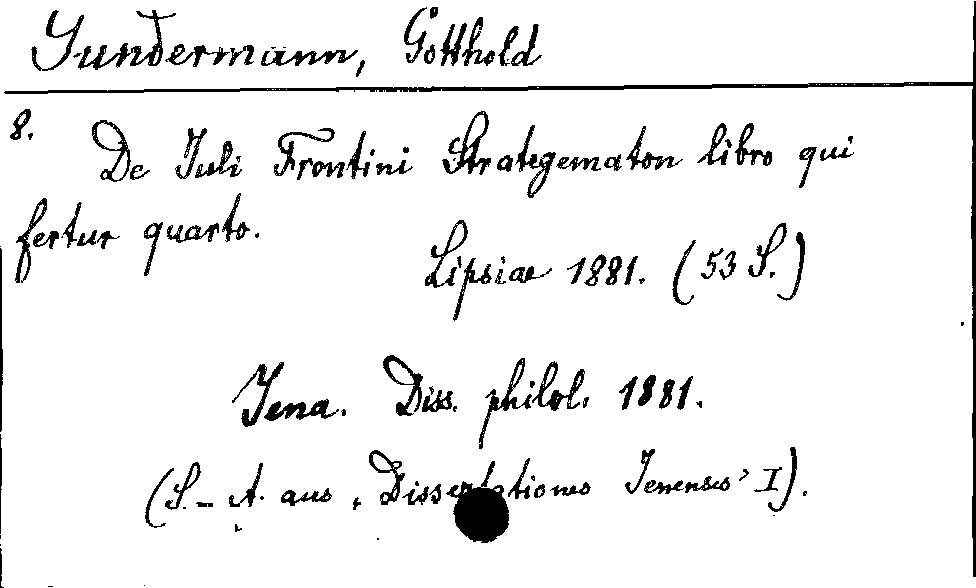 Gundermann, Gotthold
8.
De Juli Frontini Strategematon libro qui
fertur quarto.
Lipsiae 1881. (53 S.)
Jena. Diss. philol. 1881.
(S.-A. aus ,Dissertationes Jenenses' I).